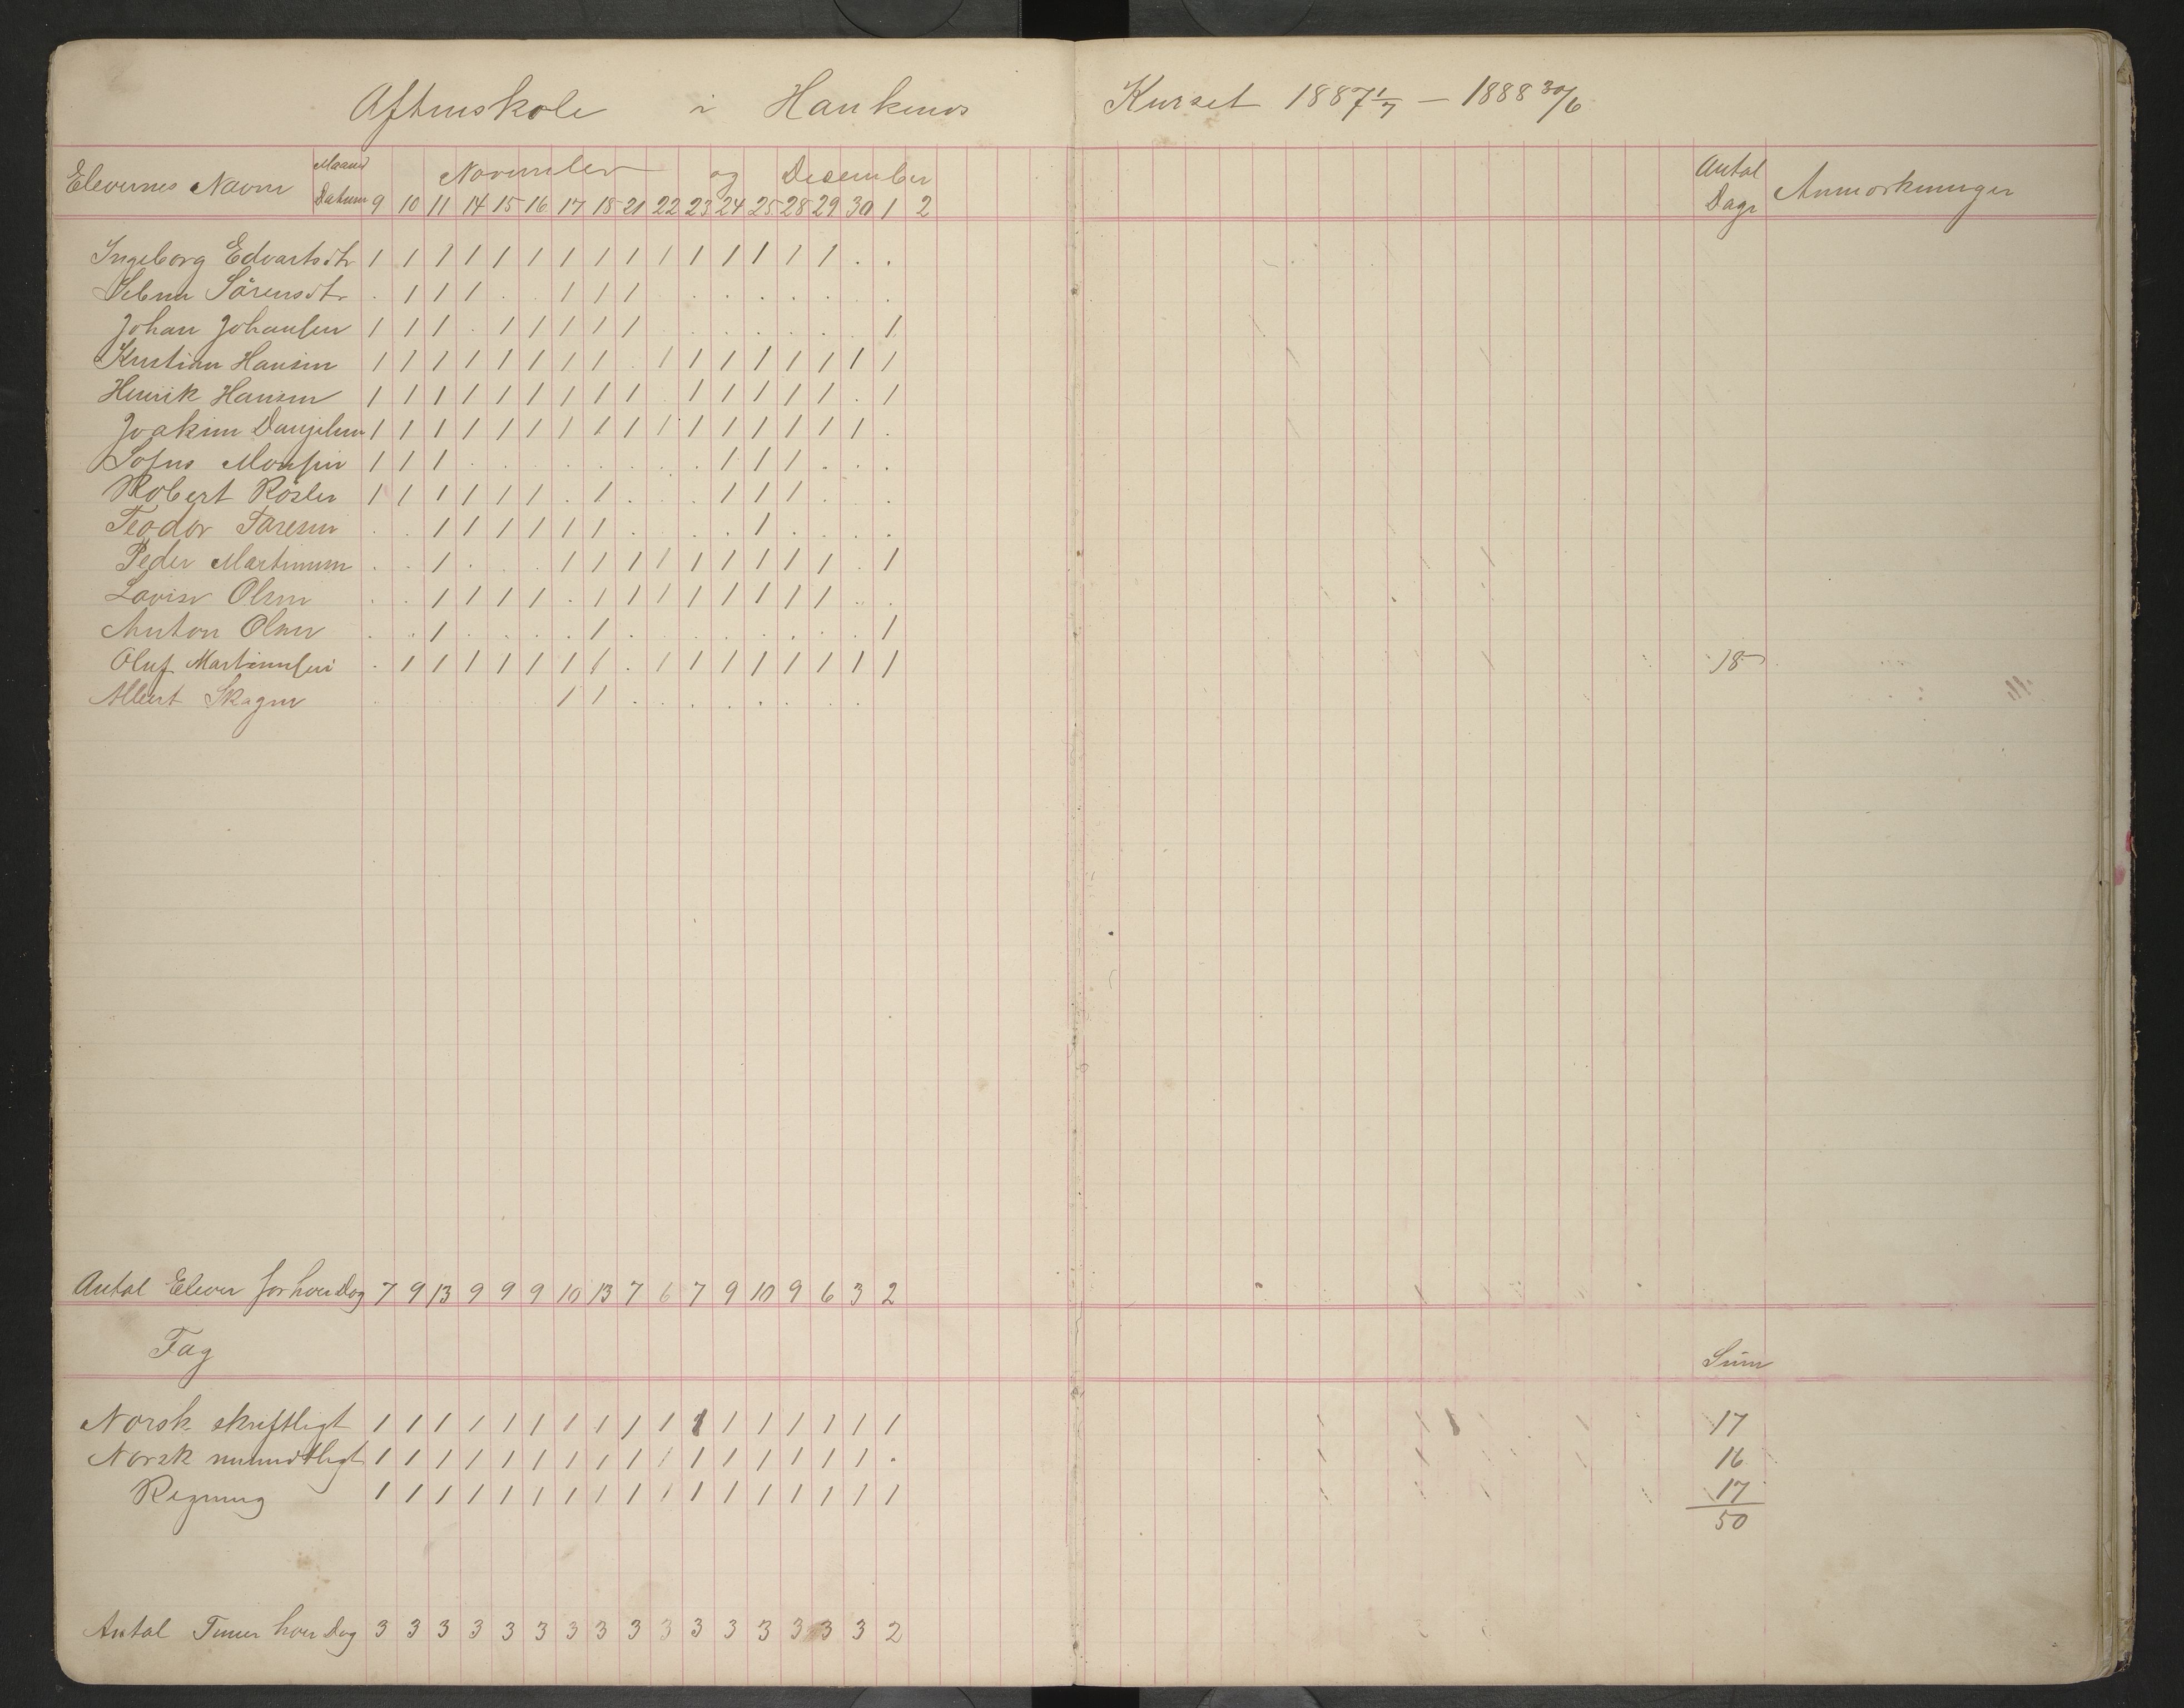 Aftenskole i Haukenes Kurset 1887 1/7 — 1888 30/6
Elevernes Navne Maaned November og Desember Antal Dage Anmærkninger
Datum 9 10 11 14 15 16 17 18 21 22 23 24 25 28 29 30 1 2
Ingeborg Edvartsdtr 1 1 1 1 1 1 1 1 1 1 1 1 1 1 1 . .
Selma Sørensdtr . 1 1 1 . . 1 1 1 . . . . . . . .
Johan Johansen 1 1 1 . 1 1 1 1 1 . . . . . . . 1
Kristian Hansen 1 1 1 1 1 1 1 1 . 1 1 1 1 1 1 1 1
Henrik Hansen 1 1 1 1 1 1 1 1 1 . 1 1 1 1 1 . 1
Joakim Danjelsen 1 1 1 1 1 1 1 1 1 1 1 1 1 1 1 1 .
Sofus Monsen 1 1 1 . . . . . . . . 1 1 1 . . .
Robert Rösler 1 1 1 1 1 1 . 1 . . . 1 1 1 . . .
Teodor Toresen . . 1 1 1 1 1 1 . . . . 1 . . . .
Peder Martinsen . . 1 . . . 1 1 1 1 1 1 1 1 1 . 1
Lovise Olsen . . 1 1 1 1 . 1 1 1 1 1 1 1 1 . .
Anton Olsen . . 1 . . . . 1 . . . . . . . . 1
Oluf Martinusen . 1 1 1 1 1 1 1 . 1 1 1 1 1 1 1 1 15
Albert Skagen . . . . . . 1 1 . . . . . . . .
Antal Elever for hver Dag 7 9 13 9 9 9 10 13 7 6 7 9 10 9 6 3 2
Fag Sum
Norsk skriftligt 1 1 1 1 1 1 1 1 1 1 1 1 1 1 1 1 1 17
Norsk mundtligt 1 1 1 1 1 1 1 1 1 1 1 1 1 1 1 1 . 16
Regning 1 1 1 1 1 1 1 1 1 1 1 1 1 1 1 1 1 17
50
Antal Timer hver Dag 3 3 3 3 3 3 3 3 3 3 3 3 3 3 3 3 2